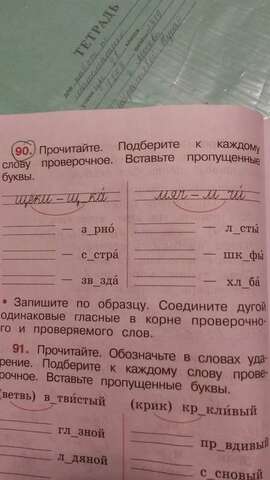 ТЕТРАДЬ
для
90. Прочитайте. Подберите к каждому
слову проверочное. Вставьте пропущенные
буквы.
щеки – щ_ка́ мяч – м_чи́
— з_рно́ — л_сты́
— с_стра́ — шк_фы́
— зв_зда́ — хл_ба́
• Запишите по образцу. Соедините дугой
одинаковые гласные в корне проверочно-
го и проверяемого слов.
91. Прочитайте. Обозначьте в словах уда-
рение. Подберите к каждому слову прове-
рочное. Вставьте пропущенные буквы.
(ветвь) в_тви́стый (крик) кр_кли́вый
гл_зной пр_вдивый
л_дяной с_сновый